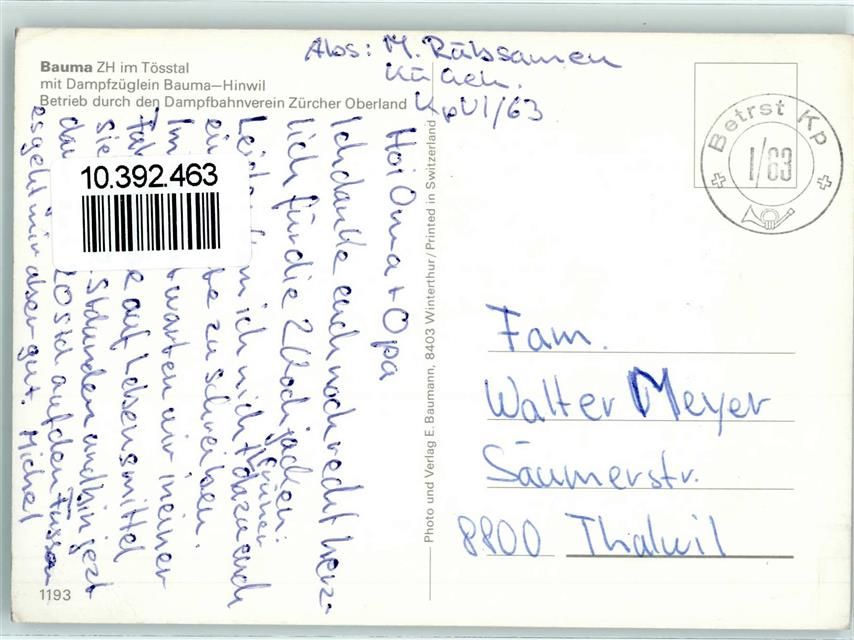 Bauma ZH im Tösstal
mit Dampfzüglein Bauma–Hinwil
Betrieb durch den Dampfbahnverein Zürcher Oberland
Abs: M. Rübsamen
Kp VI/63
Betrst Kp
I/63
10.392.463
Hoi Oma + Opa
Ich danke euch noch recht herz-
lich für die 2 Kochjacken:
ich nicht dazu euch
zu schreiben.
Im warten wir in einer
auf Lebensmittel
Sie Stunden und bin jezt
20 Std auf den Füssen
es geht mir aber gut. Michel
Photo und Verlag E. Baumann, 8403 Winterthur/Printed in Switzerland
Fam.
Walter Meyer
Säumerstr.
8800 Thalwil
1193